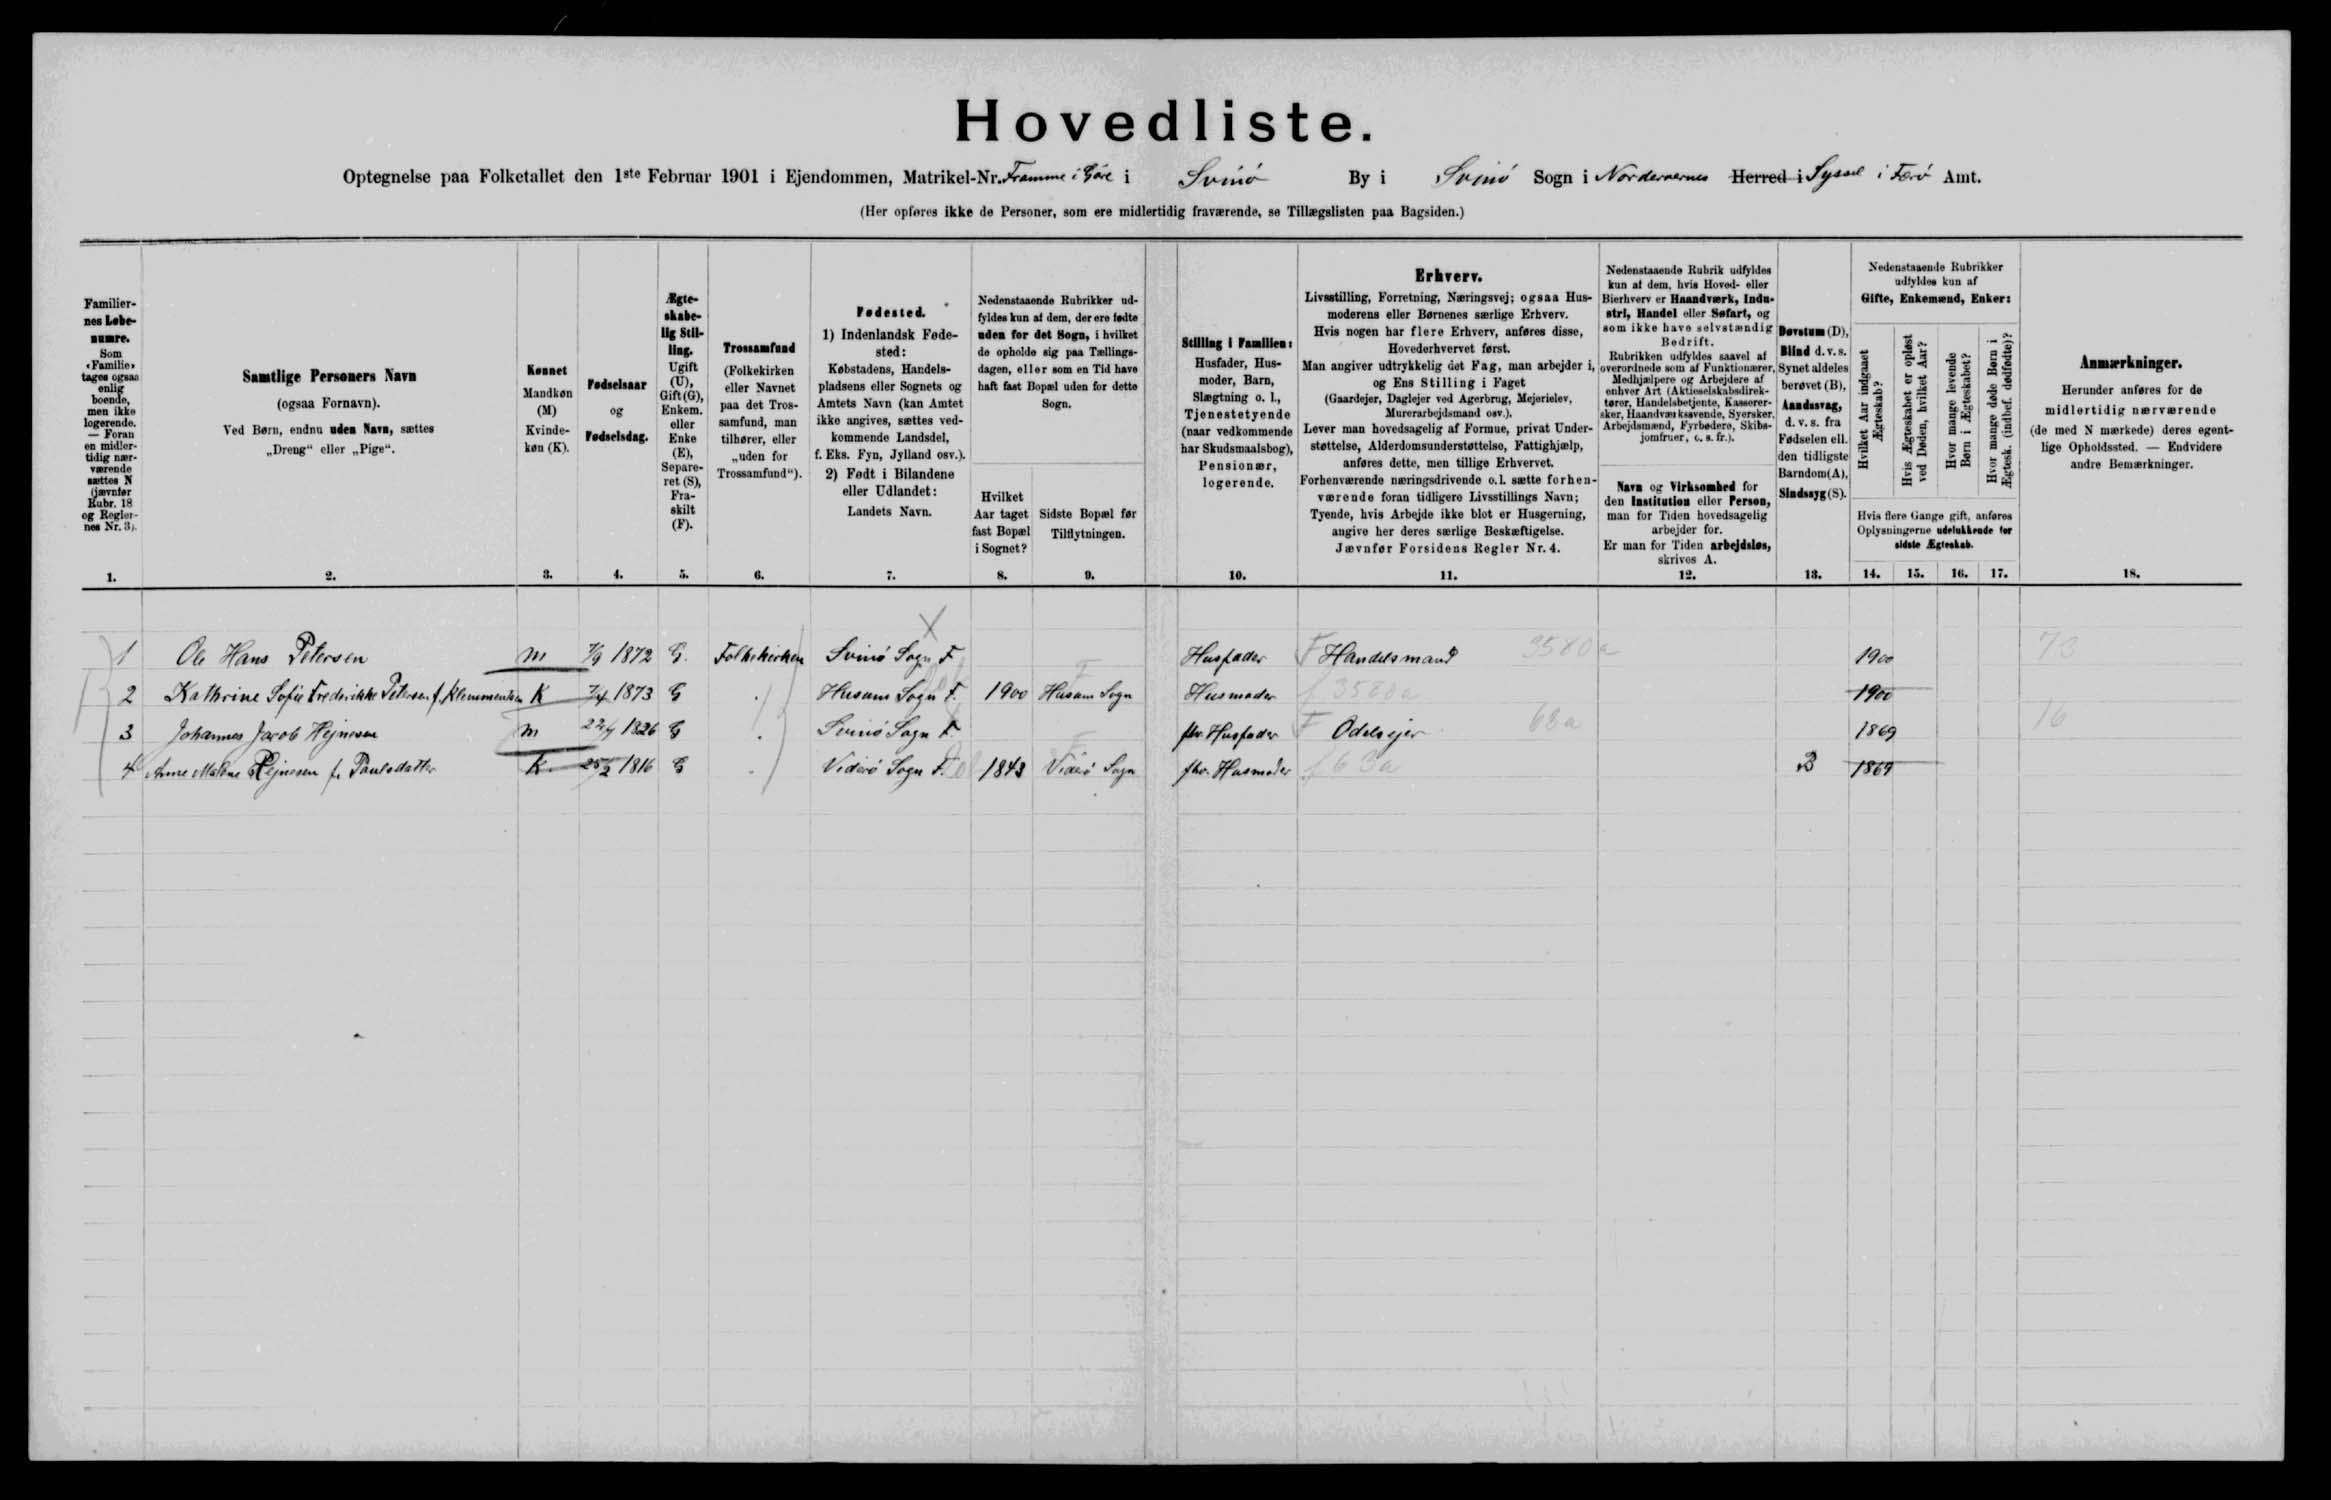 Hovedliste.
Optegnelse paa Folketallet den 1ste Februar 1901 i Ejendommen, Matrikel-Nr. Framme i Góre i Svinö By i Svinö Sogn i Norderøernes Herred i Syssel i Færö Amt.
(Her opføres ikke de Personer, som ere midlertidig fraværende, se Tillægslisten paa Bagsiden.)
Familiernes Løbenumre.
Som «Familie» tages ogsaa enlig boende, men ikke logerende. — Foran en midlertidig nærværende sættes N (jævnfør Rubr. 18 og Reglernes Nr. 3).
Samtlige Personers Navn
(ogsaa Fornavn).
Ved Børn, endnu uden Navn, sættes
„Dreng“ eller „Pige“.
Kønnet
Mandkøn (M)
Kvindekøn (K).
Fødselsaar
og
Fødselsdag.
Ægteskabelig Stilling.
Ugift (U), Gift (G), Enkem. eller Enke (E), Separeret (S), Fraskilt (F).
Trossamfund
(Folkekirken eller Navnet paa det Trossamfund, man tilhører, eller „uden for Trossamfund“).
Fødested.
1) Indenlandsk Fødested:
Købstadens, Handelspladsens eller Sognets og Amtets Navn (kan Amtet ikke angives, sættes vedkommende Landsdel, f. Eks. Fyn, Jylland osv.).
2) Født i Bilandene eller Udlandet:
Landets Navn.
Nedenstaaende Rubrikker udfyldes kun af dem, der ere fødte uden for det Sogn, i hvilket de opholde sig paa Tællingsdagen, eller som en Tid have haft fast Bopæl uden for dette Sogn.
Hvilket Aar taget fast Bopæl i Sognet?
Sidste Bopæl før Tilflytningen.
Stilling i Familien:
Husfader, Husmoder, Barn, Slægtning o. l., Tjenestetyende (naar vedkommende har Skudsmaalsbog), Pensionær, logerende.
Erhverv.
Livsstilling, Forretning, Næringsvej; ogsaa Husmoderens eller Børnenes særlige Erhverv.
Hvis nogen har flere Erhverv, anføres disse, Hovederhvervet først.
Man angiver udtrykkelig det Fag, man arbejder i, og Ens Stilling i Faget
(Gaardejer, Daglejer ved Agerbrug, Mejerielev, Murerarbejdsmand osv.).
Lever man hovedsagelig af Formue, privat Understøttelse, Alderdomsunderstøttelse, Fattighjælp, anføres dette, men tillige Erhvervet.
Forhenværende næringsdrivende o. l. sætte forhenværende foran tidligere Livsstillings Navn; Tyende, hvis Arbejde ikke blot er Husgerning, angive her deres særlige Beskæftigelse.
Jævnfør Forsidens Regler Nr. 4.
Nedenstaaende Rubrik udfyldes kun af dem, hvis Hoved- eller Bierhverv er Haandværk, Industri, Handel eller Søfart, og som ikke have selvstændig Bedrift.
Rubrikken udfyldes saavel af overordnede som af Funktionærer, Medhjælpere og Arbejdere af enhver Art (Aktieselskabsdirektører, Handelsbetjente, Kasserersker, Haandværkssvende, Syersker, Arbejdsmænd, Fyrbødere, Skibsjomfruer, o. s. fr.).
Navn og Virksomhed for den Institution eller Person, man for Tiden hovedsagelig arbejder for.
Er man for Tiden arbejdsløs, skrives A.
Døvstum (D), Blind d. v. s. Synet aldeles berøvet (B), Aandssvag, d. v. s. fra Fødselen ell. den tidligste Barndom (A), Sindssyg (S).
Nedenstaaende Rubrikker udfyldes kun af
Gifte, Enkemænd, Enker:
Hvilket Aar indgaaet Ægteskab?
Hvis Ægteskabet er opløst ved Døden, hvilket Aar?
Hvor mange levende Børn i Ægteskabet?
Hvor mange døde Børn i Ægtesk. (indbef. dødfødte)?
Hvis flere Gange gift, anføres Oplysningerne udelukkende for sidste Ægteskab.
Anmærkninger.
Herunder anføres for de midlertidig nærværende (de med N mærkede) deres egentlige Opholdssted. — Endvidere andre Bemærkninger.
1. 2. 3. 4. 5. 6. 7. 8. 9. 10. 11. 12. 13. 14. 15. 16. 17. 18.
1 Ole Hans Petersen M 1872 G. Folkekirken Svinö Sogn F. Husfader F Handelsmand 3580a 1900 73
2 Kathrine Sofie Frederikke Petersen f. Klemmentsen K 1873 G Husum Sogn F. 1900 Husum Sogn Husmoder f 3580a 1900
3 Johannes Jacob Hejnesen M 1826 G Svinö Sogn F fhv. Husfader F Odelsejer 63a 1869 16
4 Anne Malene Hejnesen f. Poulsdatter K 25/2 1816 G Viderö Sogn F. 1843 Viderö Sogn fhv. Husmoder f 63a B 1869